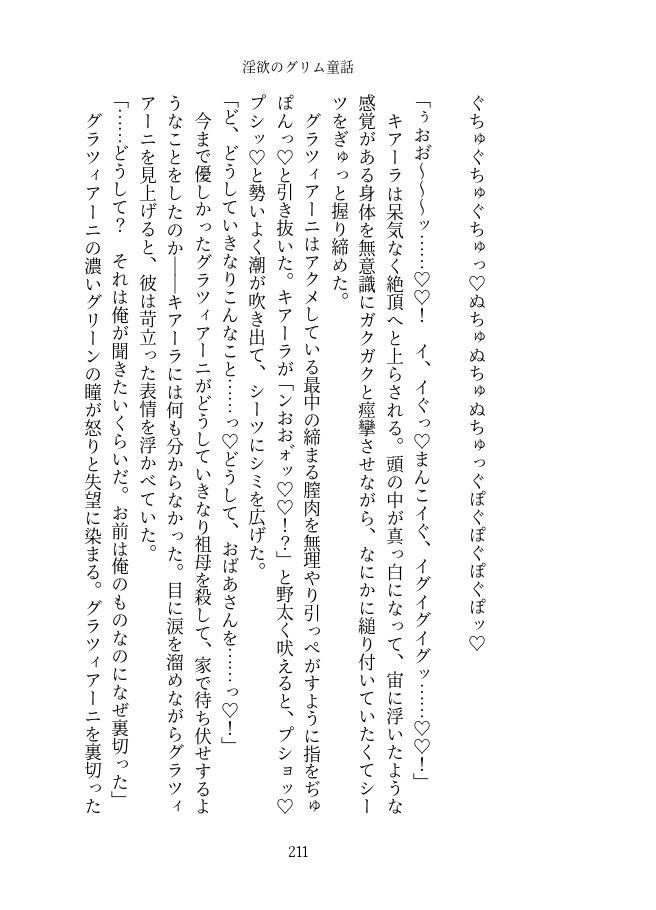 淫欲のグリム童話
ぐちゅぐちゅぐちゅっ♡ぬちゅぬちゅぬちゅっぐぽぐぽぐぽぐぽッ♡
「ぅおお゙～～～ッ……♡♡！　イ、イぐっ♡まんこイぐ、イグイグイグッ……♡♡！」
　キアーラは呆気なく絶頂へと上らされる。頭の中が真っ白になって、宙に浮いたような
感覚がある身体を無意識にガクガクと痙攣させながら、なにかに縋り付いていたくてシー
ツをぎゅっと握り締めた。
　グラツィアーニはアクメしている最中の締まる膣肉を無理やり引っぺがすように指をぢゅ
ぽんっ♡と引き抜いた。キアーラが「ンおおォ゙ッ♡♡！？」と野太く吠えると、プショッ♡
プシッ♡と勢いよく潮が吹き出て、シーツにシミを広げた。
「ど、どうしていきなりこんなこと……っ♡どうして、おばあさんを……っ♡！」
　今まで優しかったグラツィアーニがどうしていきなり祖母を殺して、家で待ち伏せするよ
うなことをしたのか――キアーラには何も分からなかった。目に涙を溜めながらグラツィ
アーニを見上げると、彼は苛立った表情を浮かべていた。
「……どうして？　それは俺が聞きたいくらいだ。お前は俺のものなのになぜ裏切った」
　グラツィアーニの濃いグリーンの瞳が怒りと失望に染まる。グラツィアーニを裏切った
211